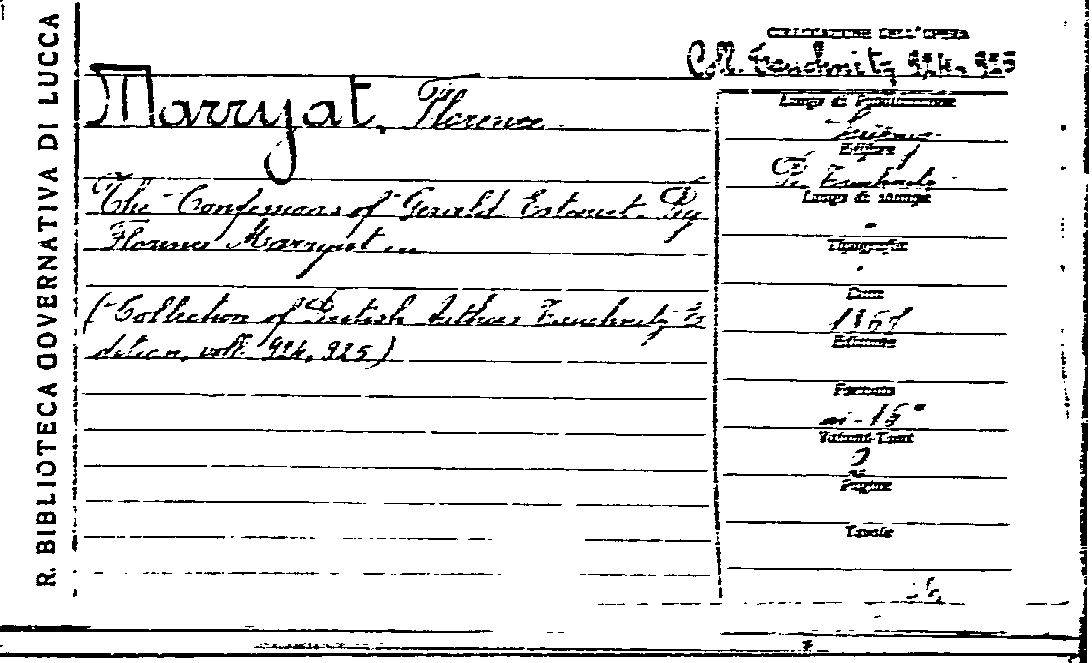 R. BIBLIOTECA GOVERNATIVA DI LUCCA
COLLOCAZIONE DELL'OPERA
Coll. Tauchnitz 924-925
Marryat, Florence
The Confessions of Gerald Estcourt. By
Florence Marryat
(Collection of British Authors Tauchnitz E
dition, voll. 924, 925)
Luogo di Pubblicazione
Editore
B. Tauchnitz
Luogo di stampa
-
Tipografia
-
Data
Edizione
Formato
in-16°
Volumi-Tomi
2
Pagine
Tavole